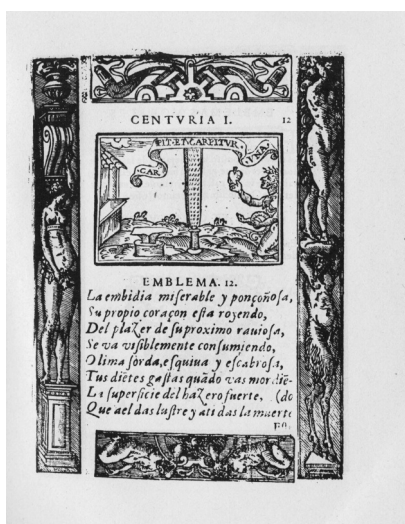 CENTVRIA I. 12
CAR PIT·ET·CARPITVR· VNA.
EMBLEMA. 12.
La embidia miserable y ponçoñosa,
Su propio coraçon esta royendo,
Del plazer de su proximo rauiosa,
Se va visiblemente consumiendo,
O lima sorda, esquiua y escabrosa,
Tus diētes gastas quādo vas mordiē-
La superficie del hazero fuerte, (do
Que a el das lustre y a ti das la muerte